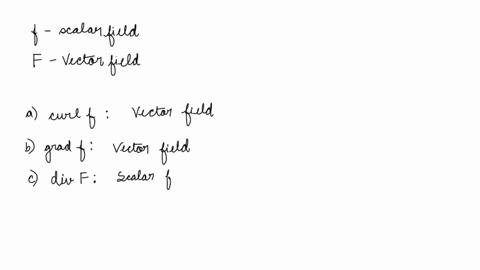 f - scalar field
F - Vector field
a) curl f : Vector field
b) grad f : Vector field
c) div F : Scalar f